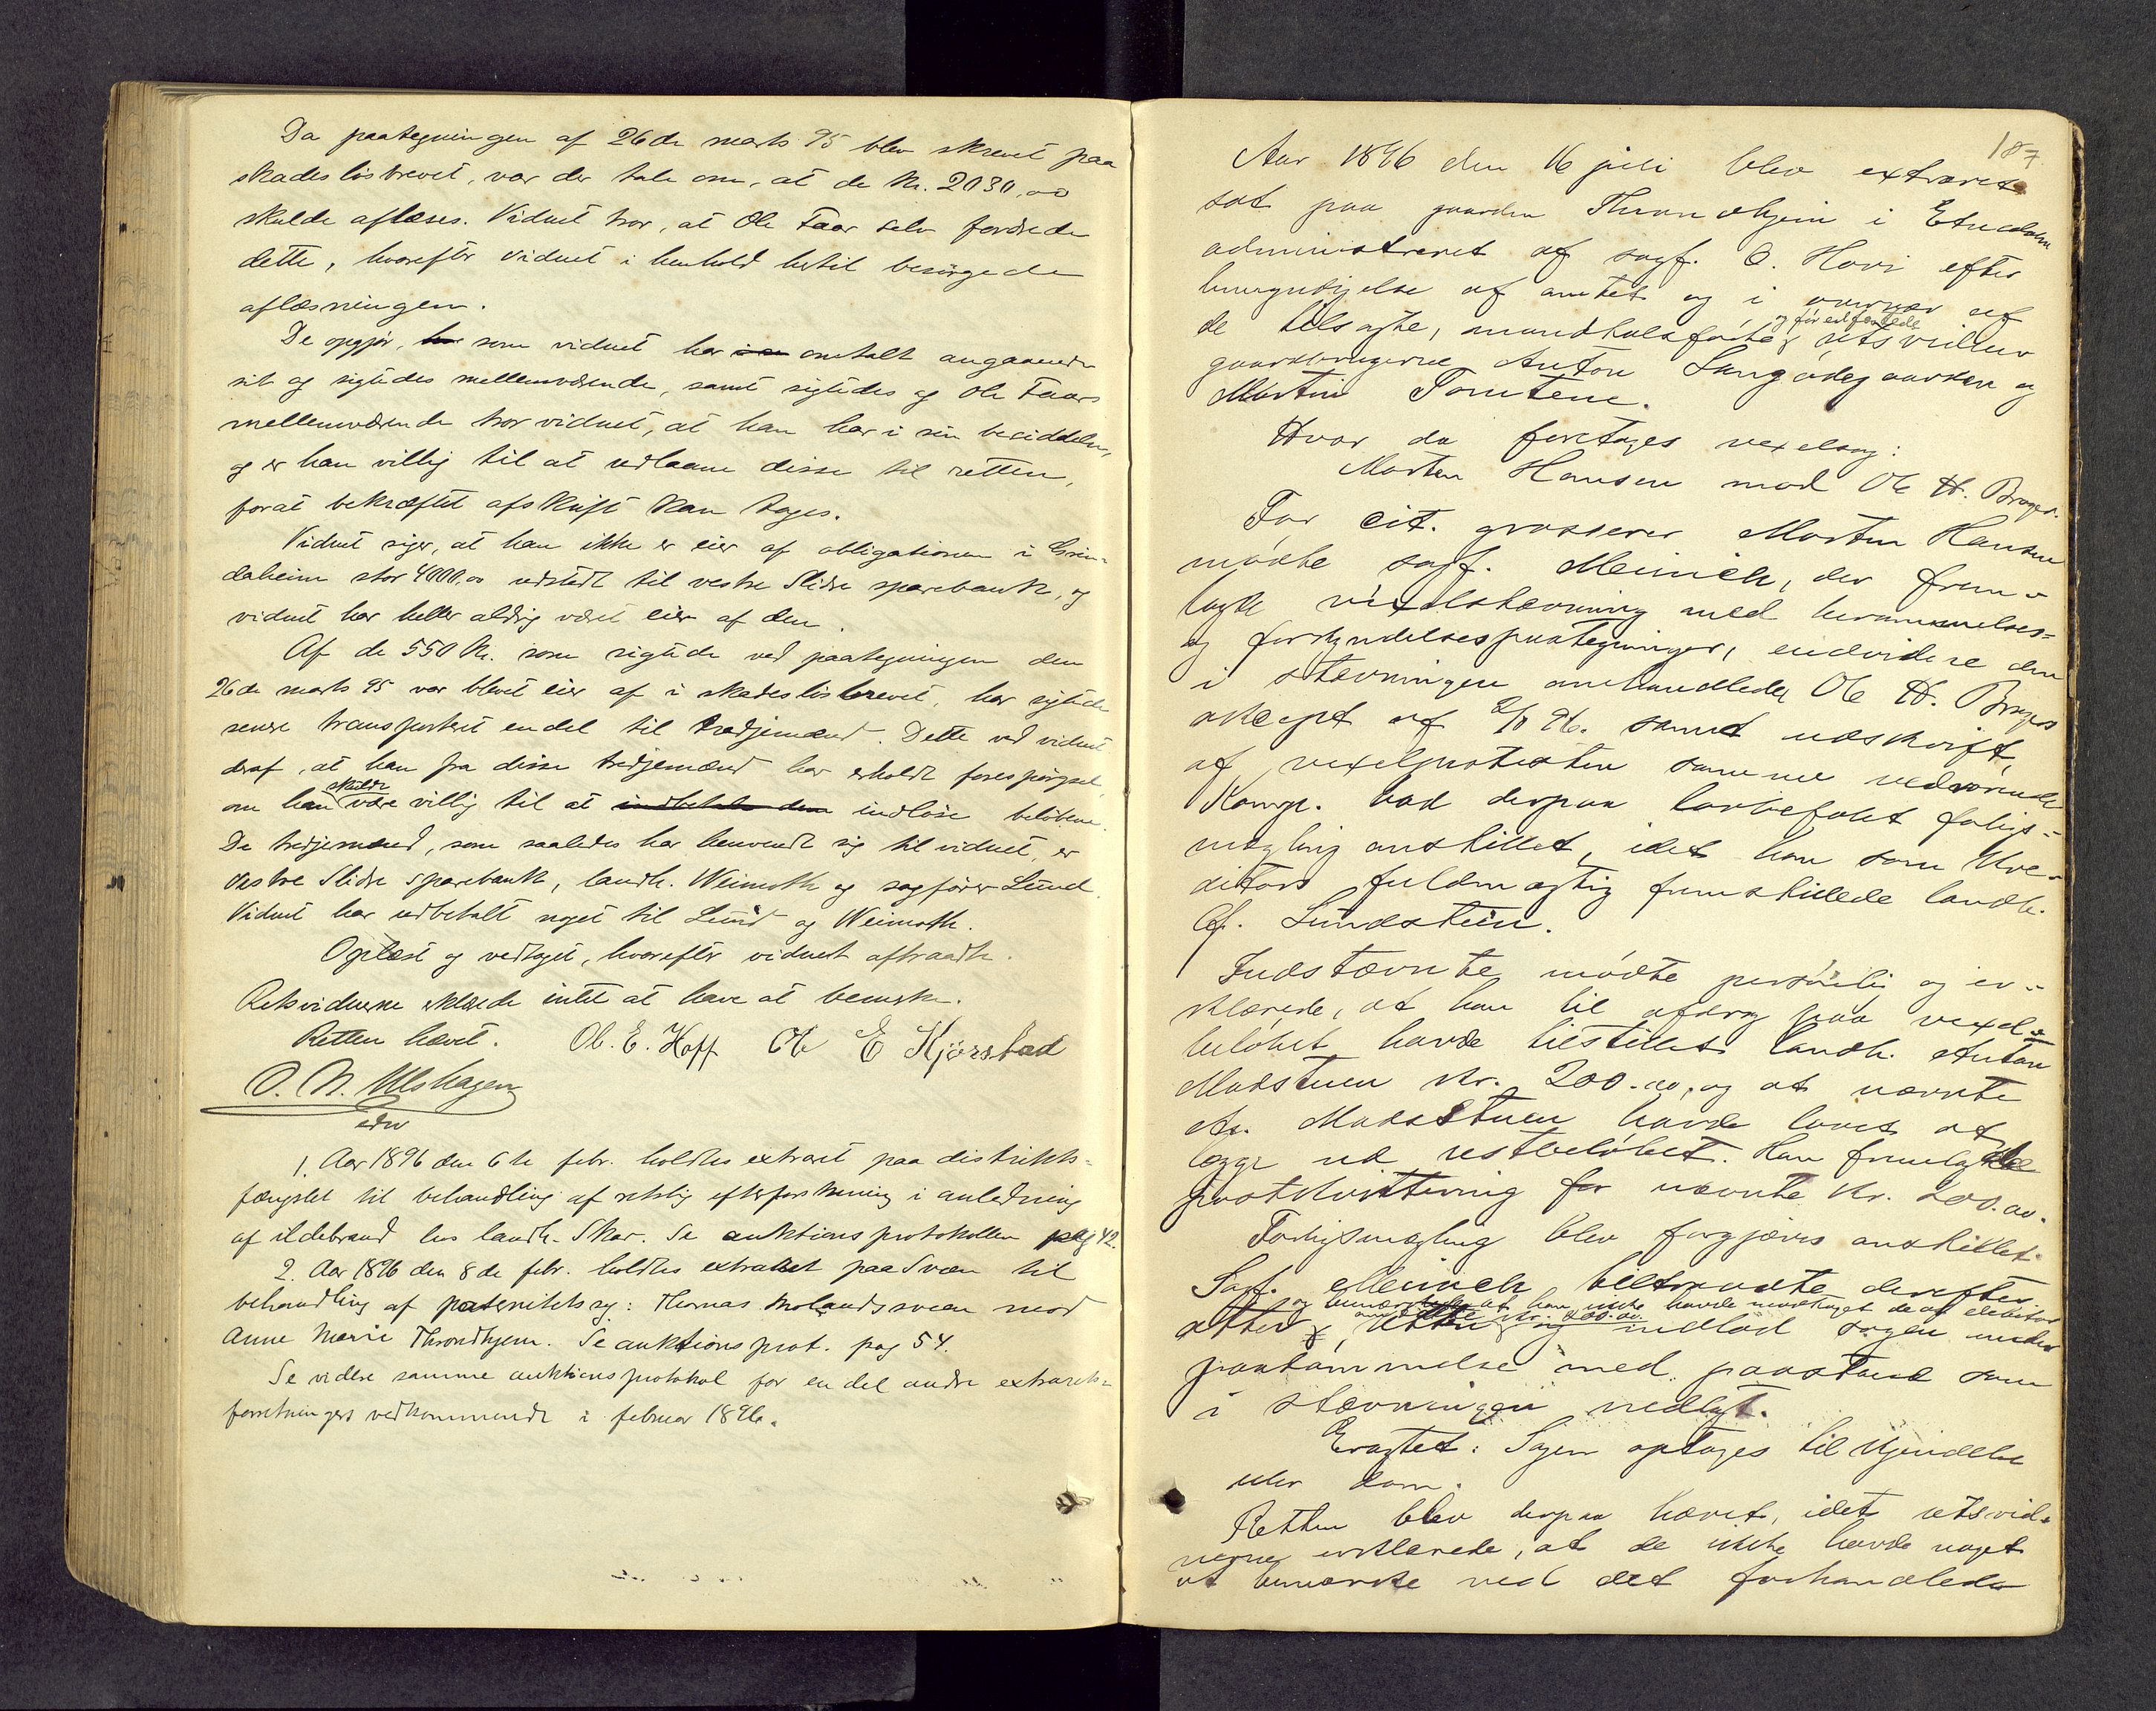 Da paategningen af 26de marts 95 blev skrevet paa
skadesløsbrevet, var der tale om, at de Kr. 2030,00
skulde aflæses. Vidnet tror, at Ole Faar selv fordrede
dette, hvorefter vidnet i henhold hertil besørgede
aflæsningen.
De opgjør, som vidnet har omtalt angaaende
sit og sigtedes mellemværende, samt sigtedes og Ole Faars
mellemværende tror vidnet, at han har i sin besiddelse,
og er han villig til at udlaane disse til retten,
forat bekræftet afskrift kan tages.
Vidnet siger, at han ikke er eier af obligationen i Grin-
daheim stor 4000,00 udstedt til vestre Slidre sparebank, og
vidnet har heller aldrig været eier af den.
Af de 550 Kr. som sigtede ved paategningen den
26de marts 95 var blevet eier af i skadesløsbrevet, har sigtede
senere transporteret endel til tredjemænd. Dette ved vidnet
deraf, at han fra disse tredjemænd har erholdt forespørgsel,
om han skulde være villig til at indbetale dem indløse beløbene.
De tredjemænd, som saaledes har henvendt sig til vidnet, er
Vestre Slidre sparebank, landh. Weimoth og sagfører Lund.
Vidnet har udbetalt noget til Lund og Weimoth.
Oplæst og vedtaget, hvorefter vidnet aftraadte.
Retsvidnerne erklærede intet at have at bemerke.
Retten hævet. Ol. E. Hoff Ole E Kjørstad
O. N. Ulshagen
edsv
1. Aar 1896 den 6te febr. holdtes extraret paa distrikts-
fængslet til behandling af retslig efterforskning i anledning
af ildebrand hos landh. Skar. Se auktionsprotokollen pag 42.
2. Aar 1896 den 8de febr. holdtes extraret paa Svæn til
behandling af paternitetssag: Thomas Molandsveen mod
Anne Marie Throndhjem. Se auktionsprot. pag 54.
Se videre samme auktionsprotokol for en del andre extrarets-
forretningers vedkommende i februar 1896.
187
Aar 1896 den 16 juli blev extraret
sat paa gaarden Throndhjem i Etnedalen
administreret af sagf. O. Hovi efter
bemyndigelse af amtet og i overvær af
og før edfæstede
de tilsagte, mundtalsførte retsvidner
gaardbrugerne Anton Langødegaarden og
Martin Tomtene.
Hvor da foretages vexelsag:
Morten Hansen mod Ole H. Brager.
For cit. grosserer Morten Hansen
mødte sagf. Meinich, der frem-
lagde vexelstevning med berammelses-
og forkyndelsespaategninger, endvidere den
i stevningen omhandlede Ole H. Bragers
akcept af 2/1 96. samt udskrift
af vexelprotesten samme vedrørende
Komp. bad derpaa lovbefalet forligs-
mægling anstillet, idet han som kre-
ditors fuldmægtig fremstillede landh.
Lundstein.
Indstævnte mødte personlig og er-
klærede, at han til afdrag paa vexel-
beløbet havde tilstillet landh. Anton
Madstuen Kr. 200.00, og at nævnte
A. Madstuen havde lovet at
lægge ud restbeløbet. Han fremlagde
postkvittering for nævnte Kr. 200.00.
Forligsmægling blev forgjæves anstillet.
Sagf. Meinich tiltraadte derefter
og bemærkede at han ikke havde modtaget de af debitor
omtalte Kr. 200.00.
retten og indlod sagen under
paadømmelse med paastand som
i stævningen nedlagt.
Eragtet: Sagen optages til kjendelse
eller dom.
Retten blev derpaa hævet, idet retsvid-
nerne erklærede, at de ikke havde noget
at bemærke ved det forhandlede